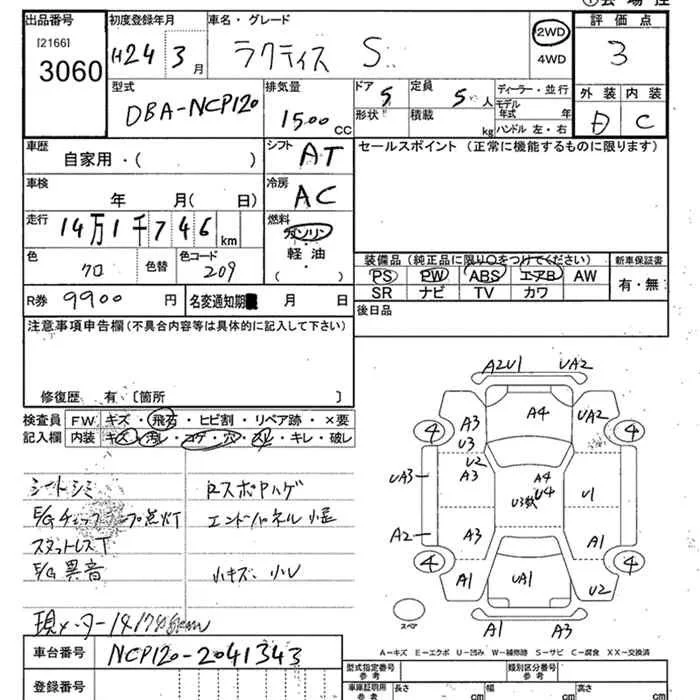 出品番号 初度登録年月 車名・グレード 評価点
[2166] 3060 H24 3月 ラクティス S 2WD 4WD 3
外装 内装
D C
型式 排気量 ドア 定員 ディーラー・並行
DBA-NCP120 1500cc 5 5人 モデル年式 年
形状 積載 kg ハンドル 左・右
車歴 シフト セールスポイント(正常に機能するものに限ります)
自家用・( ) AT
車検 冷房
年 月( 日) AC
走行 燃料
14万1千746km ガソリン
軽油
( )
色 色替 色コード
クロ 209
装備品(純正品に限り○をつけてください) 新車保証書
PS PW ABS エアB AW 有・無
SR ナビ TV カワ
R券 9900円 名変通知期 月 日
後日品
注意事項申告欄(不具合内容等は具体的に記入して下さい)
修復歴 有〔箇所 〕
検査員 FW キズ・飛石・ヒビ割・リペア跡・×要
記入欄 内装 キズ・汚レ・コゲ・穴・スレ・キレ・破レ
シートシミ RスポOハゲ
E/Gチェックランプ点灯 エンドパネル小歪
スタットレスT
E/G異音 小キズ、小U
現メーター141746km
A2U1 UA2
A4
A3 UA2
U3
4 4
U2
A3
UA3 A4
U4
U3数 U1
A2 A3 A1
4 4
A1 UA1 U2
スペア
A1 A3
A-キズ E-エクボ U-凹み W-補修跡 S-サビ C-腐食 XX-交換済
車台番号 NCP120-2041343
登録番号
型式指定番号 参考 類別区分番号 参考
車庫証明用 参考 長さ cm 幅 cm 高さ cm